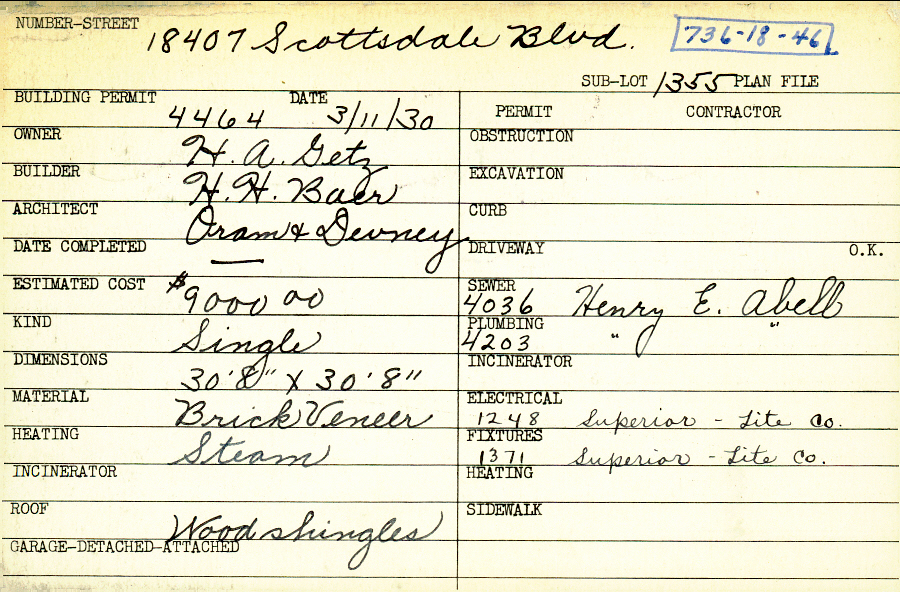 NUMBER-STREET 18407 Scottsdale Blvd. 736-18-46
SUB-LOT 1355 PLAN FILE
BUILDING PERMIT 4464 DATE 3/11/30
PERMIT CONTRACTOR
OWNER H. A. Getz
OBSTRUCTION
BUILDER H. H. Baer
EXCAVATION
ARCHITECT Oram & Devney
CURB
DATE COMPLETED —
DRIVEWAY O.K.
ESTIMATED COST $9000 00
SEWER 4036 Henry E. Abell
KIND Single
PLUMBING 4203 " "
DIMENSIONS 30'8" X 30'8"
INCINERATOR
MATERIAL Brick Veneer
ELECTRICAL 1248 Superior - Lite Co.
HEATING Steam
FIXTURES 1371 Superior - Lite Co.
INCINERATOR
HEATING
ROOF Wood shingles
SIDEWALK
GARAGE-DETACHED-ATTACHED